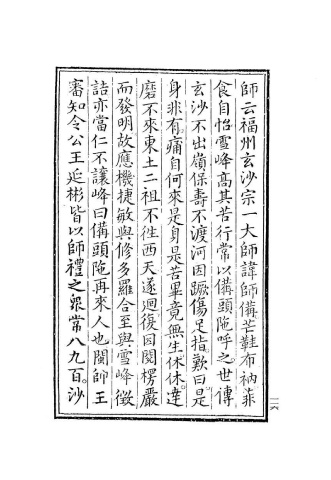 師云福州玄沙宗一大師諱師備芒鞋布衲菲
食自怡雪峰高其苦行常以備頭陁呼之世傳
玄沙不出嶺保壽不渡河因蹶傷足指歎曰是
身非有痛自何來是身是苦畢竟無生休休達
磨不來東土二祖不徃西天遂迴復因閱楞嚴
而發明故應機捷敏與修多羅合至與雪峰徵
詰亦當仁不讓峰曰備頭陁再來人也閩帥王
審知令公王延彬皆以師禮之衆常八九百沙
一一六